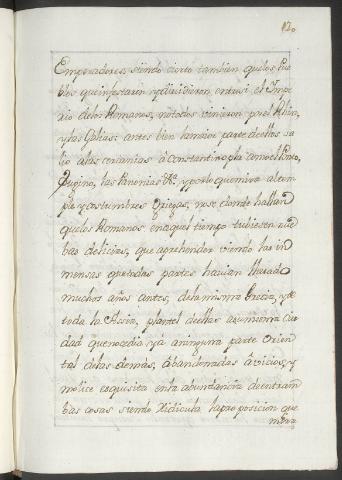 Emperadores, siendo cierto tambien que los Pue
blos que infestaron y dividieron entre si el Impe
rio delos Romanos, no todos vinieron por el Rhin,
y las Galias: antes bien la maior parte de ellos sa
lio alas cercanias a Constantinopla como el Ponto,
las Panonias &a. y por lo que mira al tem
ple y costumbres Griegas, no se donde hallan
que los Romanos en aquel tiempo tubiesen nue
bas delicias, que aprehender viendo las in
mensas que todas partes havian llevado
muchos años antes, dela misma Grecia, y de
toda la Assia, plantel de ellas a su misma Ciu
dad que no cedia ya a ninguna parte Orien
tal delas demás, abandonadas a vicios, y
molice esquisita enla abundancia de entram
bas cosas siendo ridicula la proposicion que